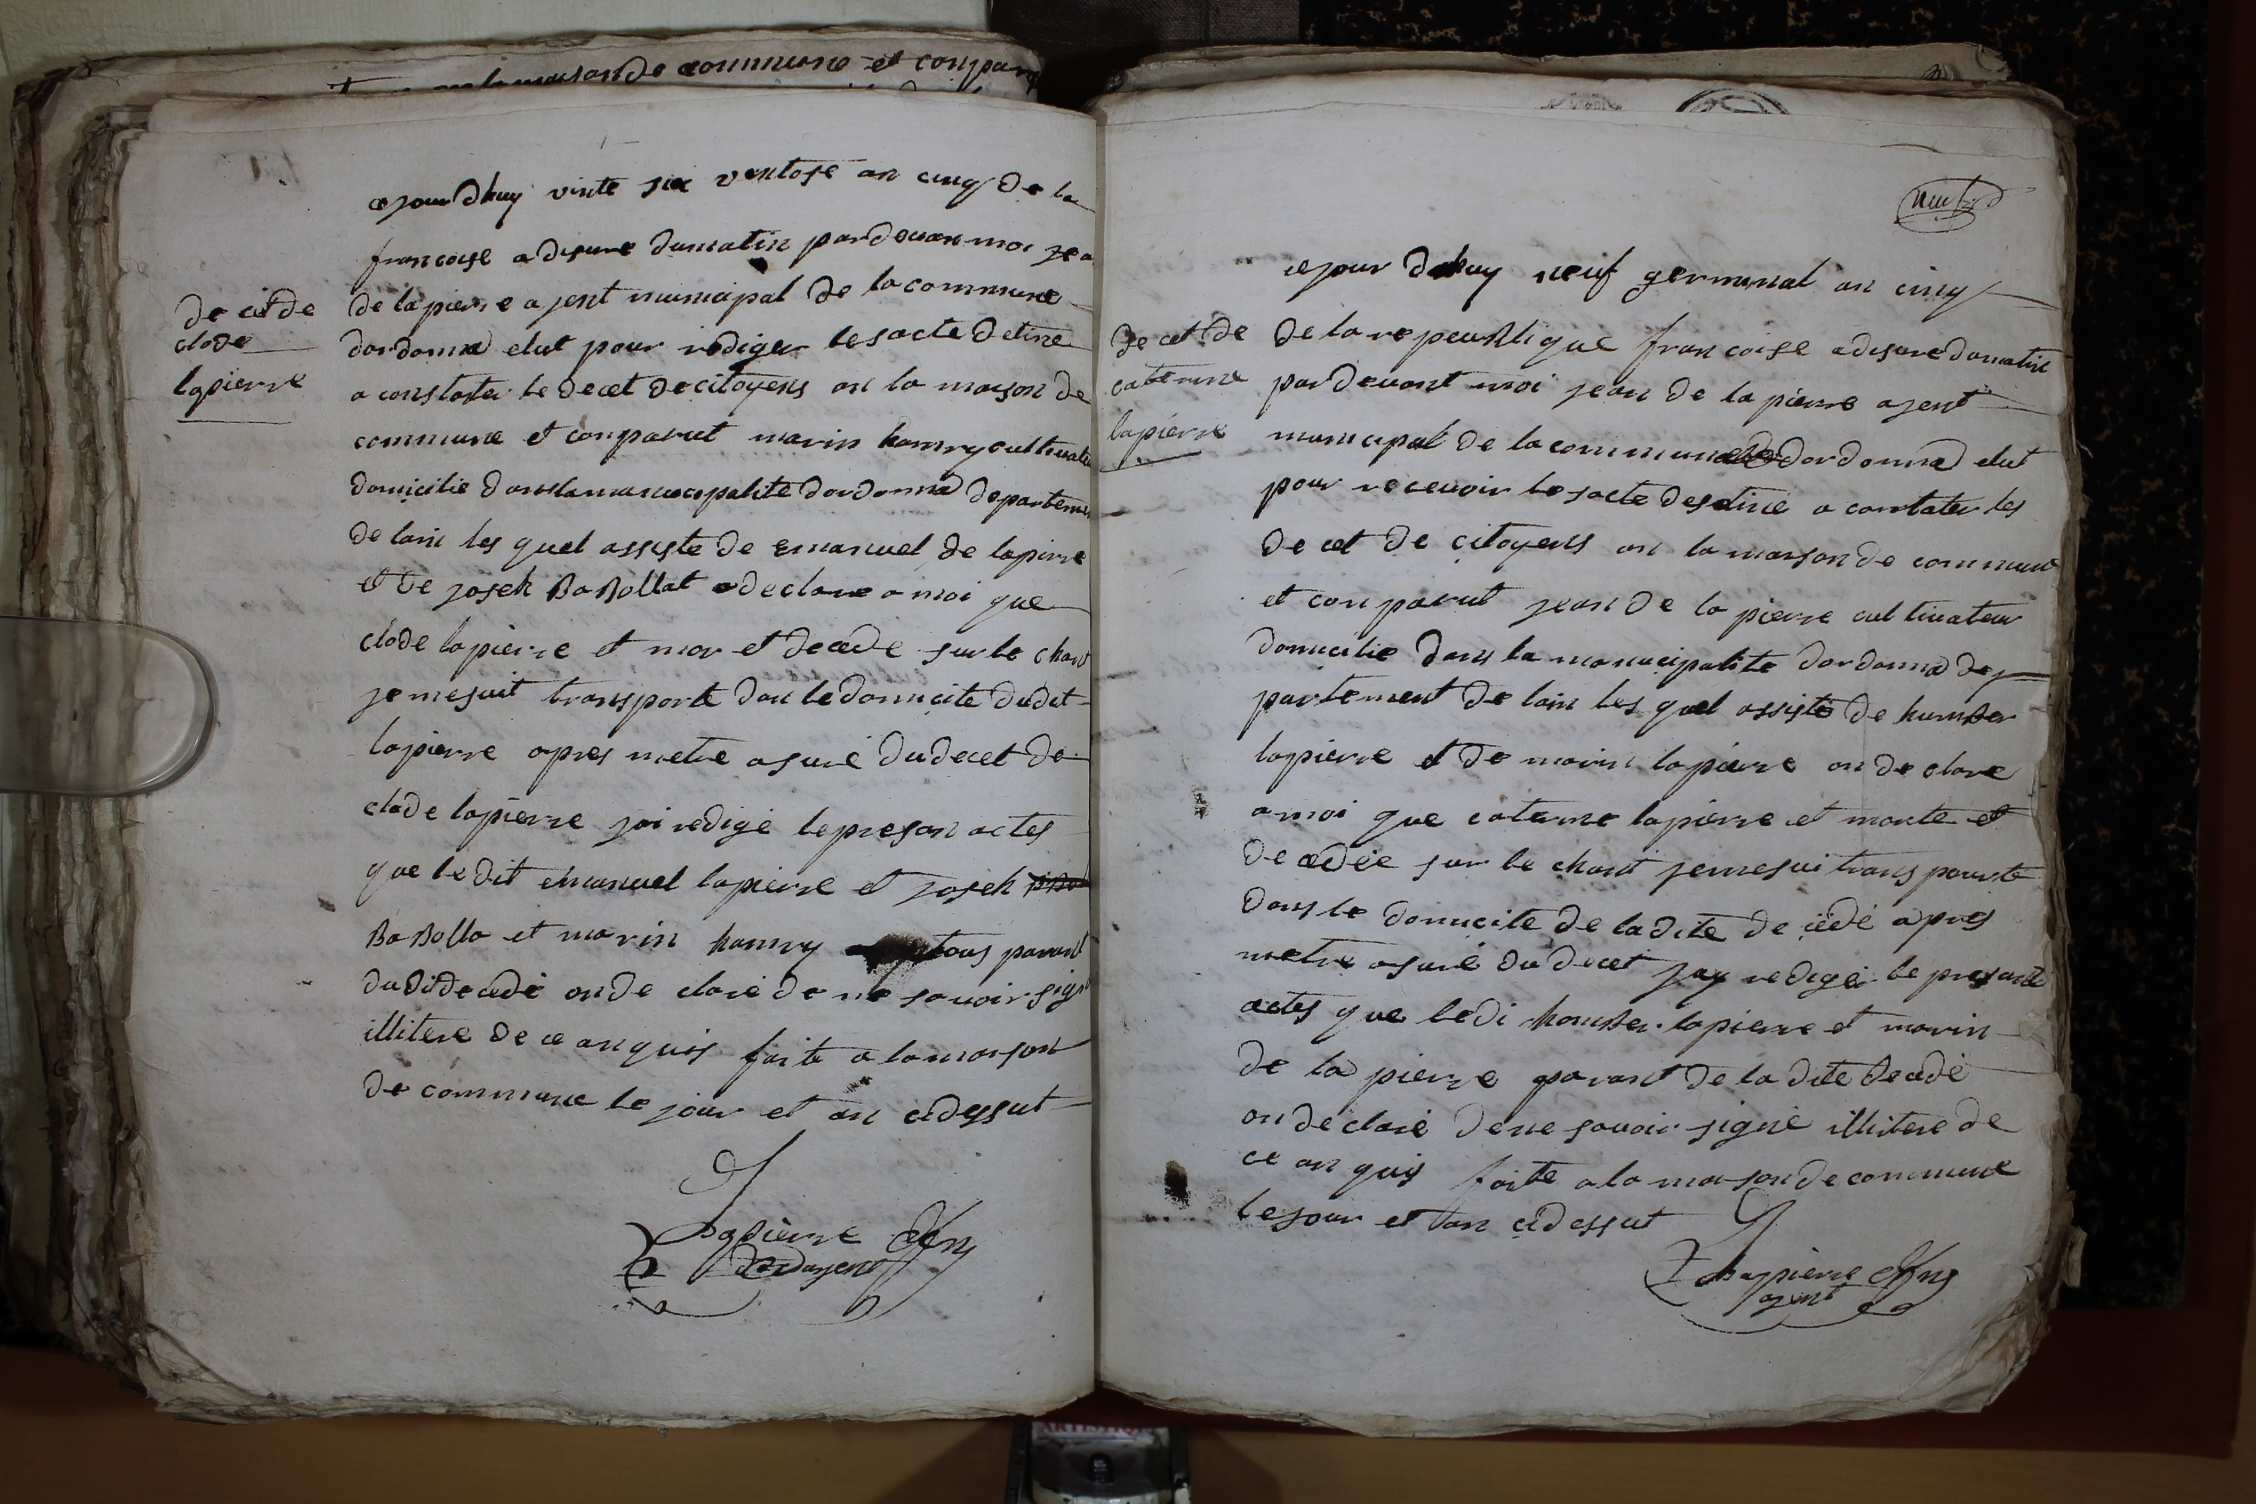 en la maison de commune et conpar
ojourdhuy vinte six ventose an cinq de la
francoise a diseure dumatin pardevan moi jea
de lapierre ajent municipal de la commune
dordonna elut pour rediger lesacte detiné
a constater le decet de citoyens an la maison de
commune et conparut marin hanry cultivate
domicilie danslamanucipalite dordonna departeme
de lain les quel assiste de emanuel de lapirre
et de joseh Babollat a declare a moi que
clode lapierre et mor et decede sur le chant
je mesuit transporte dan le domicile dudit
lapierre apres metre asuré du decet de
clode lapierre jai redigé lepresan actes
que ledit emanuel lapierre et joseh
Babolla et marin hanry tous parant
dudit decedé onde claré de ne savoir signé
illitere de ce anquis faite a lamaison
de commune le jour et an cidessut
Lapierre
ajent
de cet de
clode
lapierre
neuf
ojour dhuy neuf germinal an cinq
de la repeublique francoise a diseure dumatin
pardevant moi jean de la pierre ajent
municipal de la commune dordonna elut
pour recevoir lesacte destiné a constater les
de cet de citoyens an la maison de commune
et conparut jean de la pierre cultivateur
domicilie dans la manucipalite dordonna de
partement de lain les quel assisté de humber
lapierre et de marin lapierre an de clare
a moi que caterine lapierre et morte et
decedée sur le chant jemesui transpourte
dans le domicile de ladite de cedé apres
metre asuré du decet jay rediger le presant
actes que ledi houmber lapierre et marin
de la pierre parant de la dite decedé
on declaré dene savoir signé illitere de
ce an quis faite a la maison de commune
le jour et an cidessut
Lapierre
ajent
de cet de
caterine
lapierre